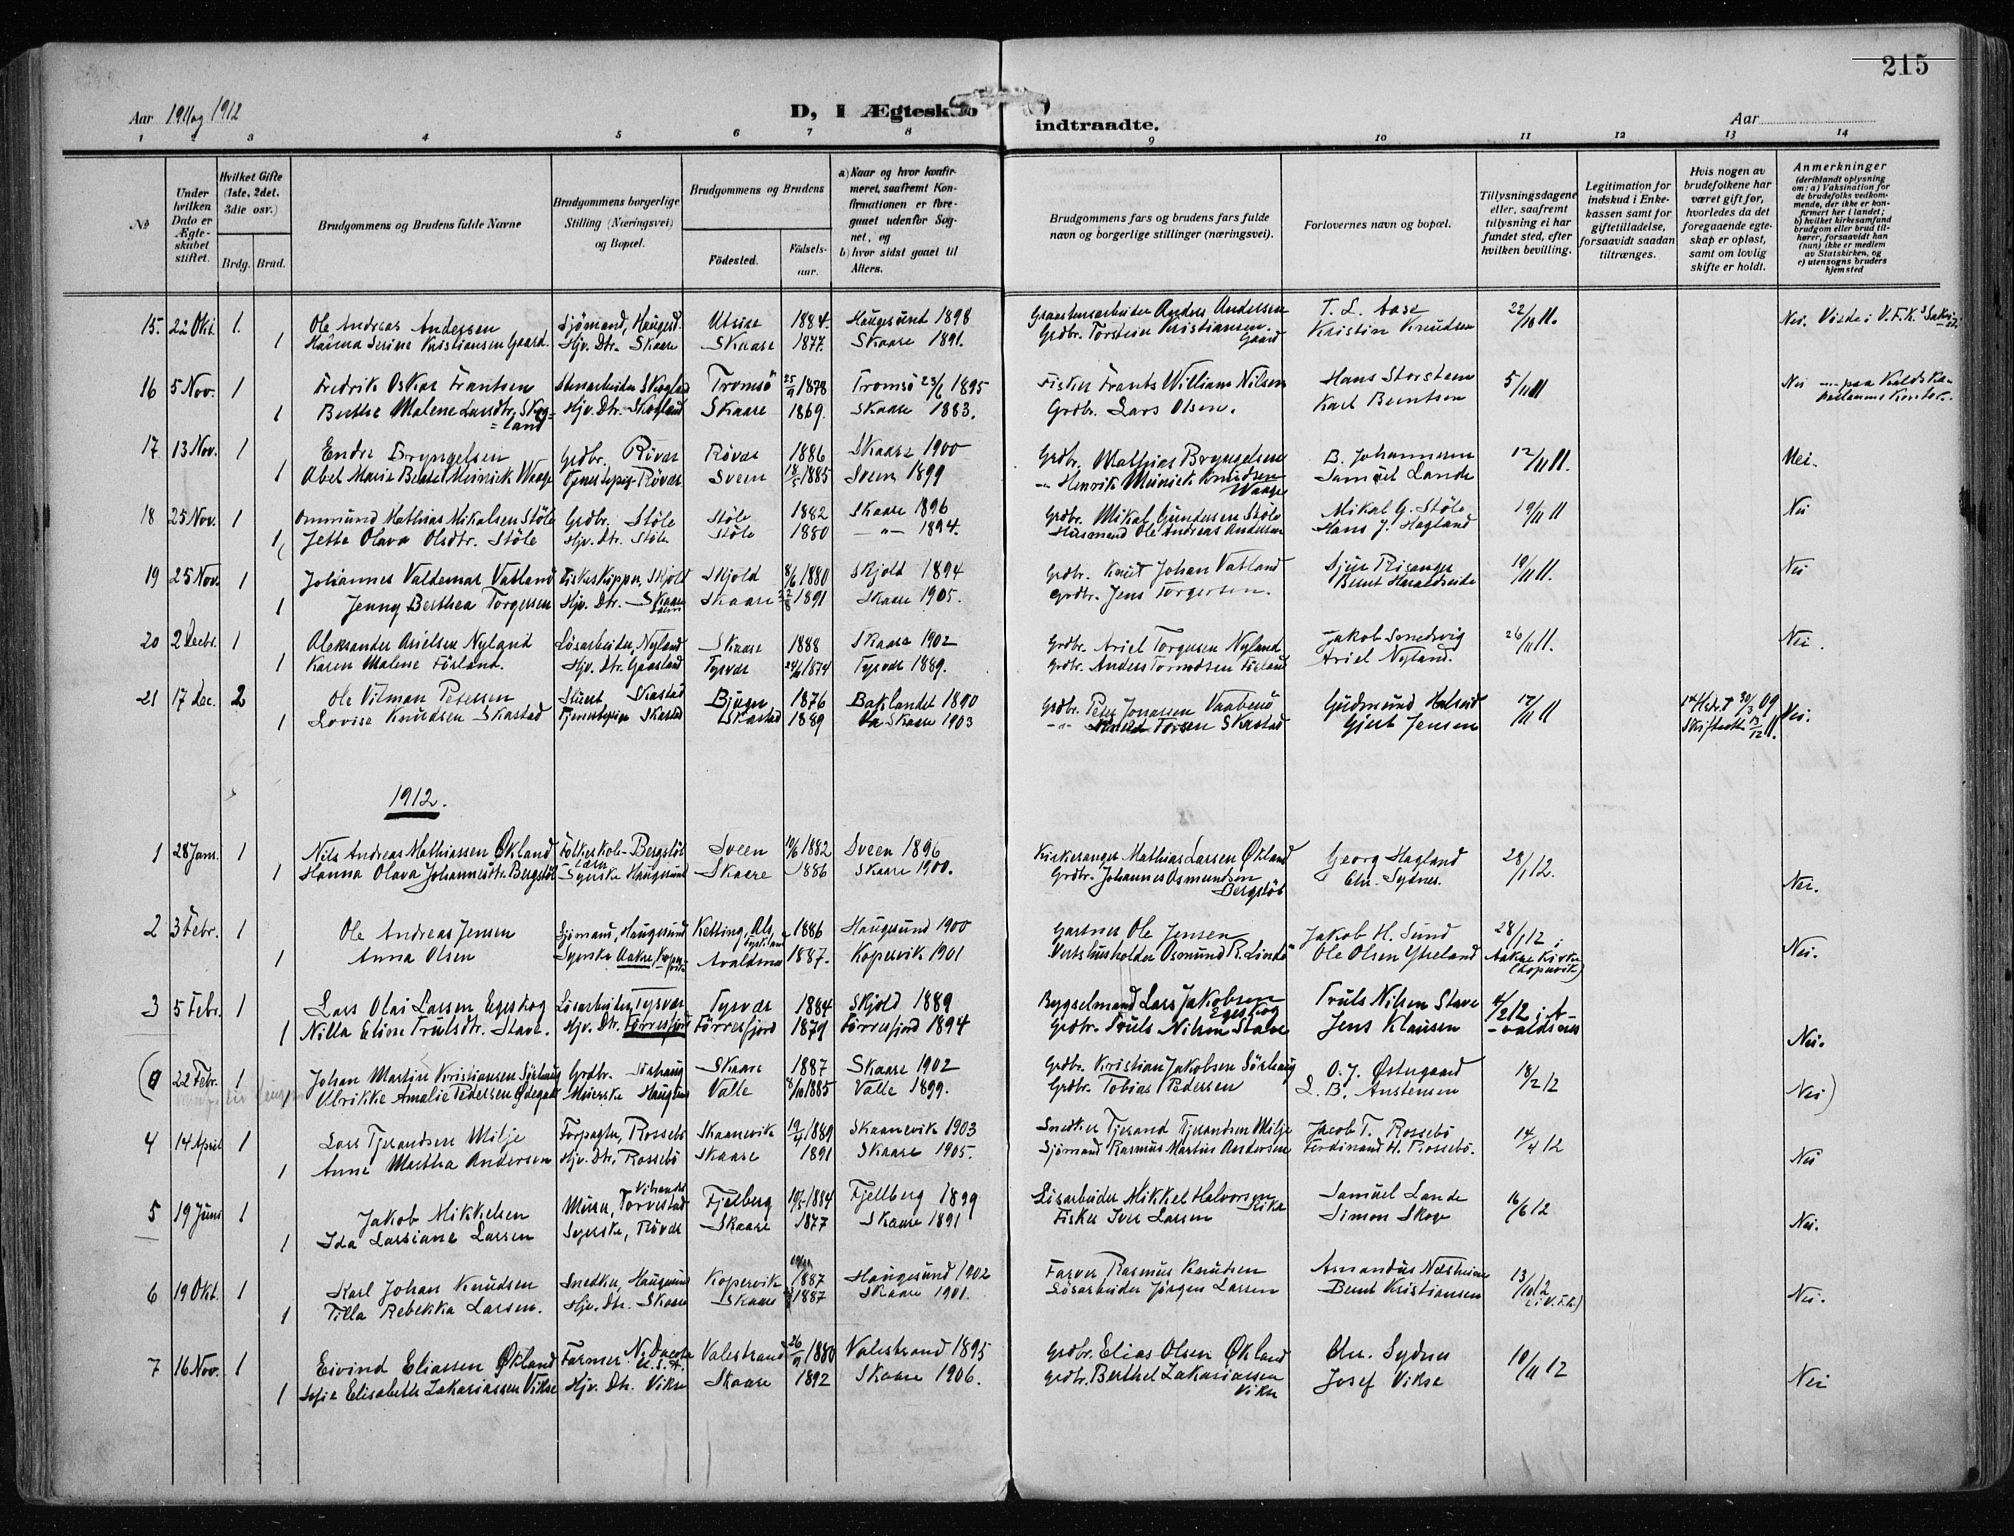 215
Aar 1911 og 1912
D, I Ægtesk
indtraadte.
Aar
1 2 3 4 5 6 7 8 9 10 11 12 13 14
No
Under hvilken Dato er Ægteskabet stiftet.
Hvilket Gifte (1ste, 2det, 3die osv.)
Brdg. Brud.
Brudgommens og Brudens fulde Navne
Brudgommens borgerlige Stilling (Næringsvei) og Bopæl.
Brudgommens og Brudens
Fødested.
Fødselsaar.
a) Naar og hvor konfirmeret, saafremt Konfirmationen er foregaaet udenfor Sognet, og
b) hvor sidst gaaet til Alters.
Brudgommens fars og brudens fars fulde navn og borgerlige stillinger (næringsvei).
Forlovernes navn og bopæl.
Tillysningsdagene eller, saafremt tillysning ei har fundet sted, efter hvilken bevilling.
Legitimation for indskud i Enkekassen samt for giftetilladelse, forsaavidt saadan tiltrænges.
Hvis nogen av brudefolkene har været gift før, hvorledes da det foregaaende egteskap er opløst, samt om lovlig skifte er holdt.
Anmerkninger (deriblandt oplysning om: a) Vaksination for de brudefolks vedkommende, der ikke er konfirmert her i landet; b) hvilket kirkesamfund brudgom eller brud tilhører, forsaavidt han (hun) ikke er medlem av Statskirken, og c) utensogns bruders hjemsted
15. 22 Okt. 1. Ole Andreas Andersen Sjømand, Haugesd. Utsire 1884. Haugesund 1898 Graastensarbeider Anders Andersen T. L. Aase 22/10 11. Nei. Viede i V.F.K.s Sakristi
1 Serine Kristiansen Gaard. Hjv. Dtr. Skaare Skaare 1877. Skaare 1891. Grdbr. Torstein Kristiansen Gaard Kristin Knudsen
16 5 Nov. 1 Fredrik Oskar Frantsen Stenarbeider Skogland Tromsø 25/9 1878 Tromsø 23/6 1895 Fisker Frants William Nilsen Hans Storsteen 5/11 11 Nei paa
1 Berthe Malene Larsdtr. Skogland Hjv. Dtr. Skogland Skaare 1869. Skaare 1883. Grdbr. Lars Olsen. Karl Berntsen
17 13 Nov. 1 Endre Bryngelsen Grdbr. Røvær Røvær 1886 Skaare 1900 Grdbr. Mathias Bryngelsen B. Johannesen 12/11 11. Nei.
1 Abel Marie Meinick Waage Tjenestepige Røvær Sveen 18/5 1885 Sveen 1899 -"- Henrik Meinick Knudsen Waage Samuel Lande
18 25 Nov. 1 Ommund Mathias Mikalsen Støle Grdbr. Støle Støle 1882 Skaare 1896 Grdbr. Mikal Gundersen Støle Mikal G. Støle 19/11 11 Nei
1 Jette Olava Olsdtr. Støle Hjv. Dtr. Støle Støle 1880 -"- 1894. Husmand Ole Andreas Andersen Hans J. Hagland
19 25 Nov. 1 Johannes Valdemar Vatland Fiskeskipper, Skjold Skjold 8/6 1880 Skjold 1894 Grdbr. Knut Johan Vatland Sjur Risanger 19/11 11. Nei
1 Jenny Berthea Torgersen Hjv. Dtr. Skaare Skaare 1891 Skaare 1905. Grdbr. Jens Torgersen. Bernt Haraldseide
20 2 Decbr. 1 Aleksander Arielsen Nyland Løsarbeider, Nyland Skaare 1888 Skaare 1902 Grdbr. Ariel Torgersen Nyland Jakob Smedsvig 26/11 11. Nei.
1 Karen Malene Førland. Hjv. Dtr. Tysvær 1874 Tysvær 1889. Grdbr. Anders Tormodsen Førland Ariel Nyland.
21 17 Dec. 2 Ole Vilman Petersen Skaestad Bjugn 1876 Baklandet 1890 Grdbr. Peter Jonassen Gudmund 12/11 11 1ste Hdr. † 30/3 09 Nei.
1 Lovise Knudsen Skastad Tjenestepige Skastad Skastad 1889 Skaare 1903 -"- Torsen Skastad Gjert Jensen Skiftet 13/12 11.
1912.
1 28 Jan. 1 Nils Andreas Mathiassen Økland Folkeskolelærer Bergstøl Sveen 1882 Sveen 1896 Kirkesanger Mathias Larsen Økland Georg Hagland 28/1 12. Nei.
1 Hanna Olava Johannesdtr. Bergstøl Syerske Haugesund Skaare 1886 Skaare 1900. Grdbr. Johannes Osmundsen Bergstøl Chr. Sydnes.
2 3 Febr. 1 Ole Andreas Jensen Sjømand, Haugesund Ketting, Als, Tyskland 1886 Haugesund 1900 Gartner Ole Jensen Jakob H. Sund 28/1 12 i Aakre Kirke (Kopervik) Nei.
1 Anna Olsen Syerske Aakre, Kopervik Avaldsnes 1887. Kopervik 1901 Vertshusholder Osmund R. Lindø Ole Olsen Ytreland
3 5 Febr. 1 Lars Olai Larsen Egeskog Løsarbeider, Tysvær Tysvær 1884 Skjold 1889 Bygselmand Lars Jakobsen Egeskog Truls Nilsen Stave 4/2 12 i Avaldsnes Nei.
1 Nilla Eline Trulsdtr. Stave. Hjv. Dtr. Førresfjord Førresfjord 1879 Førresfjord 1894 Grdbr. Truls Nilsen Stave Jens Klausen
22 Febr. 1 Johan Martin Kristiansen Sørhaug Grdbr. Sørhaug Skaare 1887 Skaare 1902 Grdbr. Kristian Jakobsen Sørhaug O. J. Østergaard 18/2 12 Nei)
1 Ulrikke Amalie Pedersen Ødegaard Meierske Haugesund Valle 8/10 1885 Valle 1899. Grdbr. Tobias Pedersen L. B. Austensen
4 14 April 1 Lars Tjerandsen Milje Forpagter, Rossebø Skaanevik 19/4 1889 Skaanevik 1903 Snedker Tjerand Tjerandsen Milje Jacob T. Rossebø 14/4 12 Nei
1 Anne Martha Andersen Hjv. Dtr. Rossebø Skaare 1891 Skaare 1905. Sjømand Rasmus Martin Andersen Ferdinand H. Rossebø.
5 19 Juni 1 Jakob Mikkelsen Murer, Torvestad Fjelberg 1884 Fjellberg 1899 Løsarbeider Mikkel Halvorsen Samuel Lande 16/6 12 Nei.
1 Ida Larsiane Larsen Syerske, Røvær Skaare 1877 Skaare 1891 Fisker Iver Larsen Simon Skoge
6 19 Okt. 1 Karl Johan Knudsen Snedker, Haugesund Kopervik 1887 Haugesund 1902 Farver Rasmus Knutsen Amandus Næsheim 13/10 12 (i V.F.K.) Nei.
1 Tilla Rebekka Larsen. Hjv. Dtr. Skaare Skaare 1887 Skaare 1901. Løsarbeider Jørgen Larsen Bernt Kristiansen
7 16 Nov. 1 Eivind Eliassen Økland Farmer N. Dacota U.S.A. Valestrand 26/9 1880 Valestrand 1895 Grdbr. Elias Olsen Økland Chr. Sydnes 10/11 12 Nei
1 Sofie Elisabeth Zakariassen Vikse Hjv. Dtr. Vikse Skaare 1892 Skaare 1906. Grdbr. Berthel Zakariassen Vikse Josef Vikse